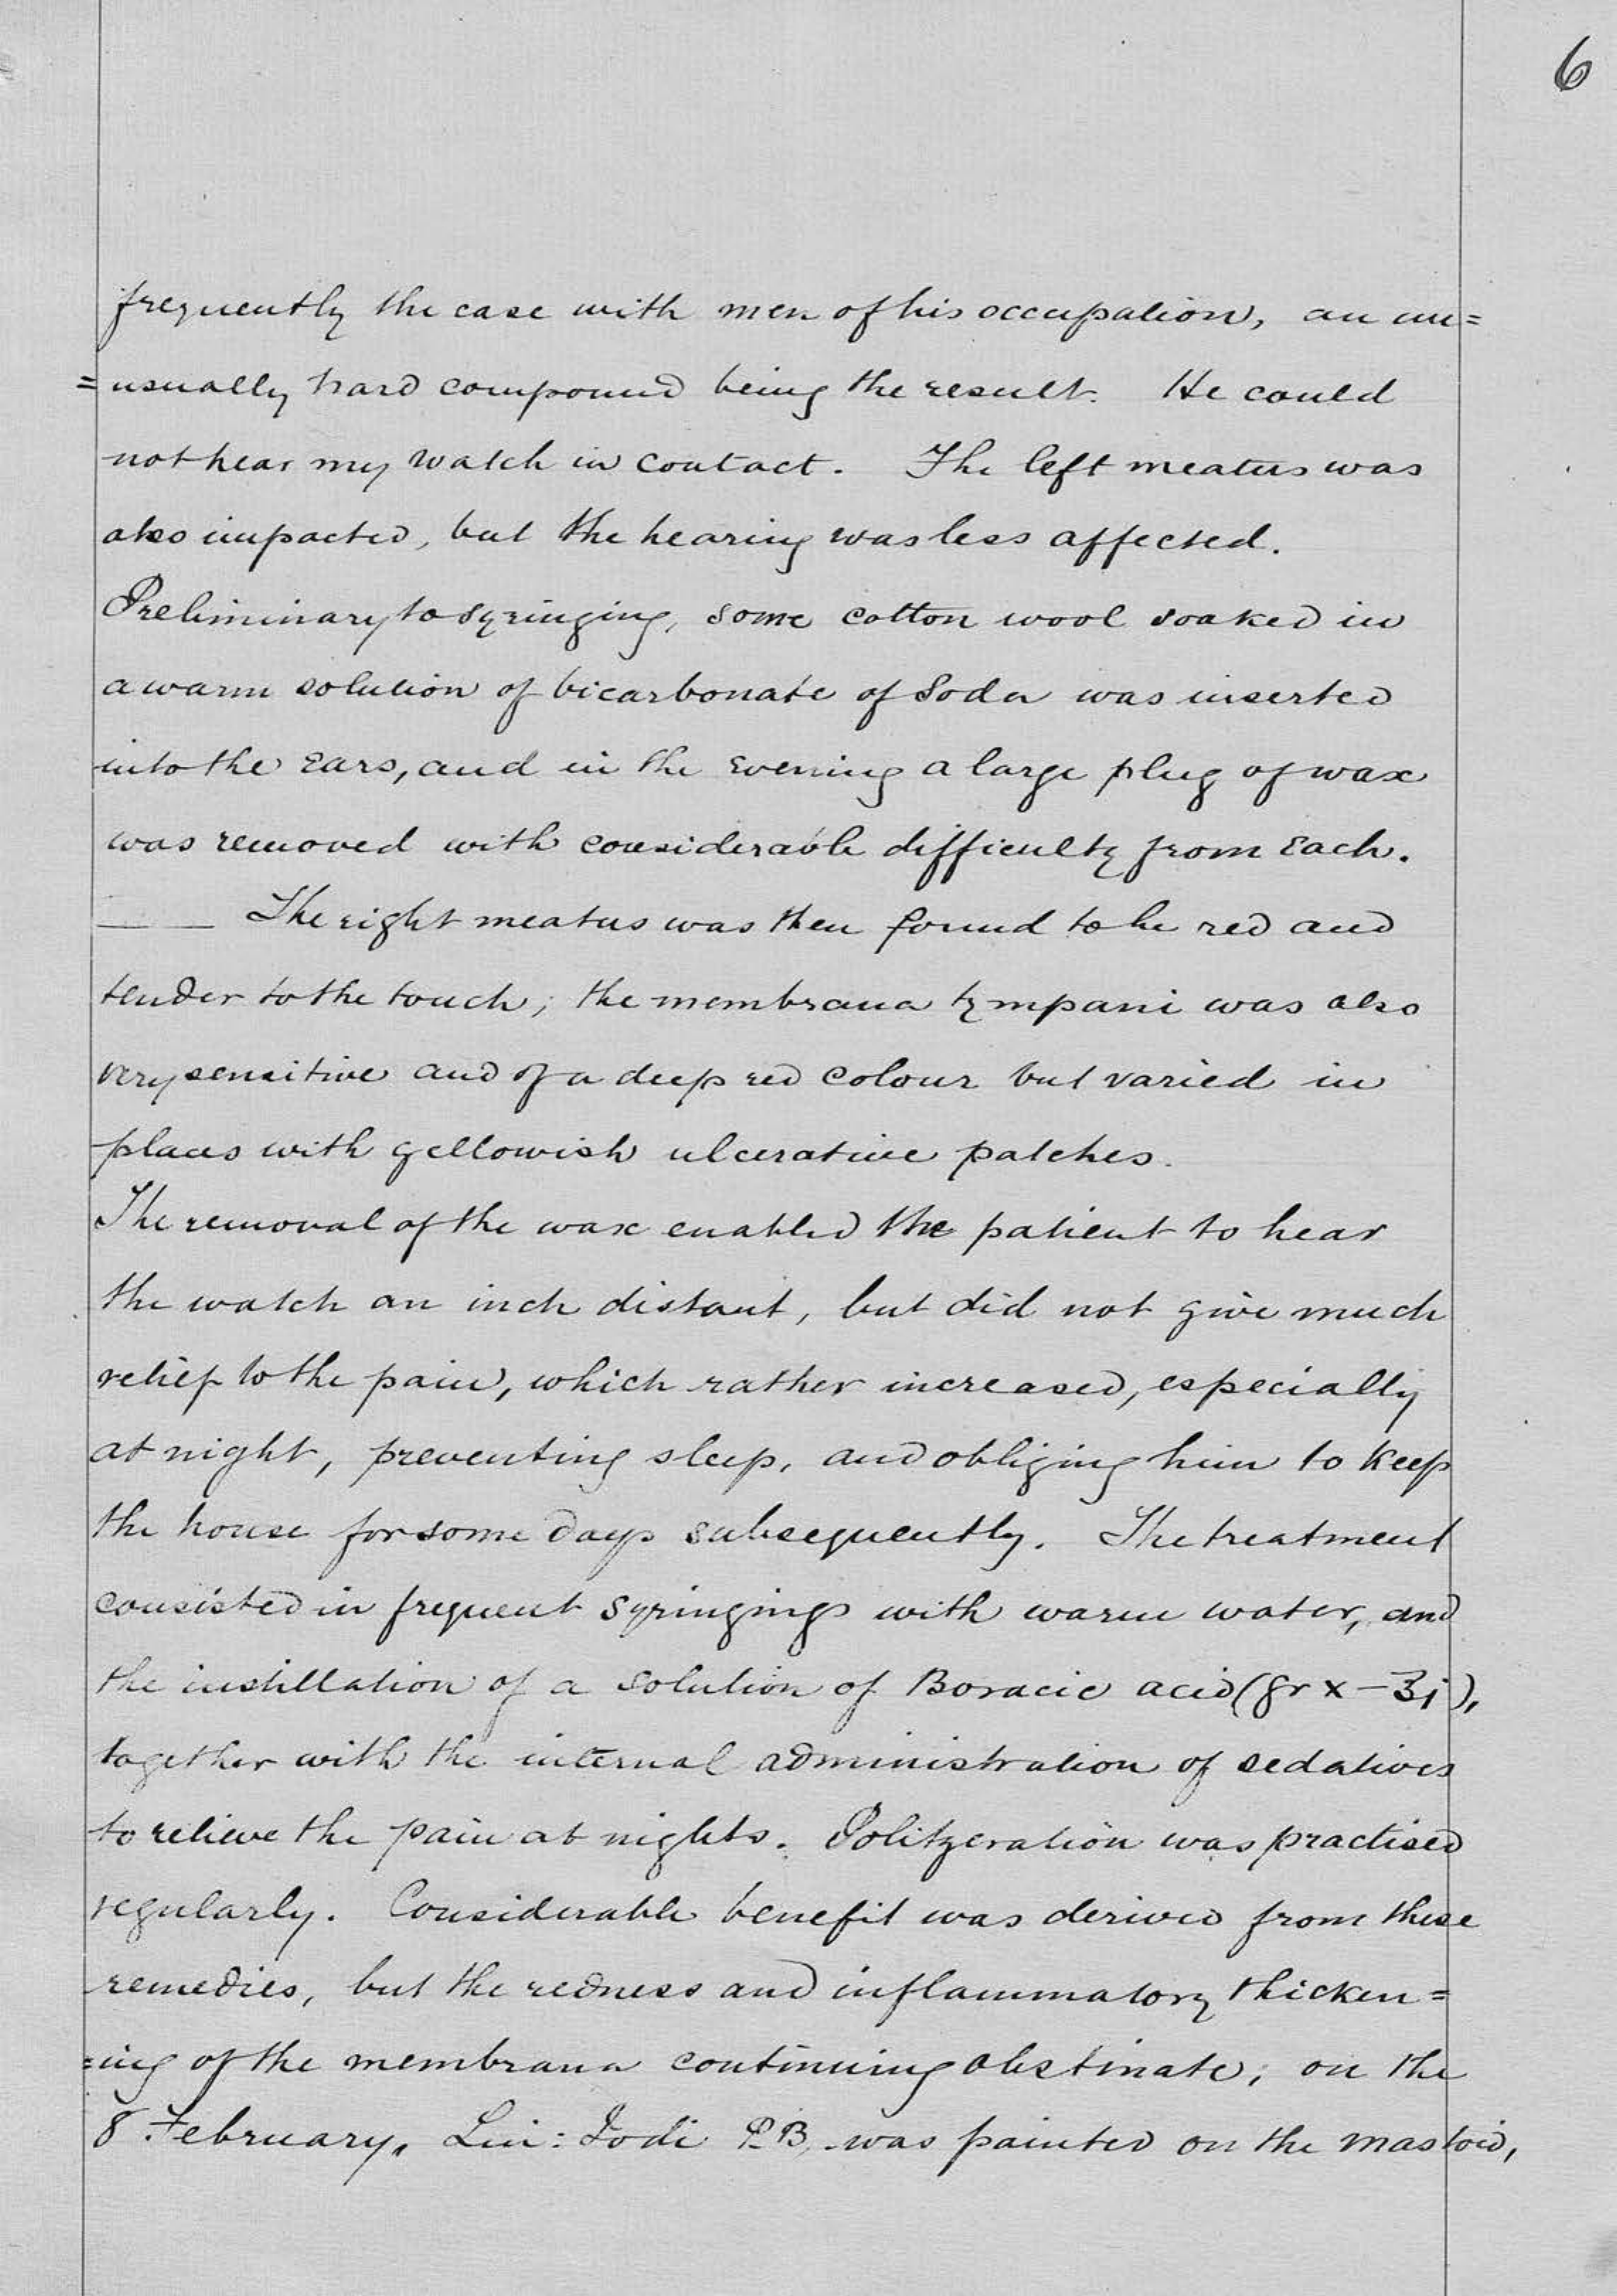 6
frequently the case with men of his occupation, an un=
=usually hard compound being the result. He could
not hear my watch in contact. The left meatus was
also impacted, but the hearing was less affected.
Preliminary to syringing, some cotton wool soaked in
a warm solution of bicarbonate of Soda was inserted
into the ears, and in the evening a large plug of wax
was removed with considerable difficulty from each.
The right meatus was then found to be red and
tender to the touch; the membrana tympani was also
very sensitive and of a deep red colour but varied in
places with yellowish ulcerative patches.
The removal of the wax enabled the patient to hear
the watch an inch distant, but did not give much
relief to the pain, which rather increased, especially
at night, preventing sleep, and obliging him to keep
the house for some days subsequently. The treatment
consisted in frequent syringings with warm water, and
the instillation of a solution of Boracic acid (gr x - ℥j),
together with the internal administration of sedatives
to relieve the pain at nights. Politzeration was practised
regularly. Considerable benefit was derived from these
remedies, but the redness and inflammatory thicken=
=ing of the membrana continuing obstinate, on the
8 February, Lin: Iodi P.B. was painted on the mastoid,